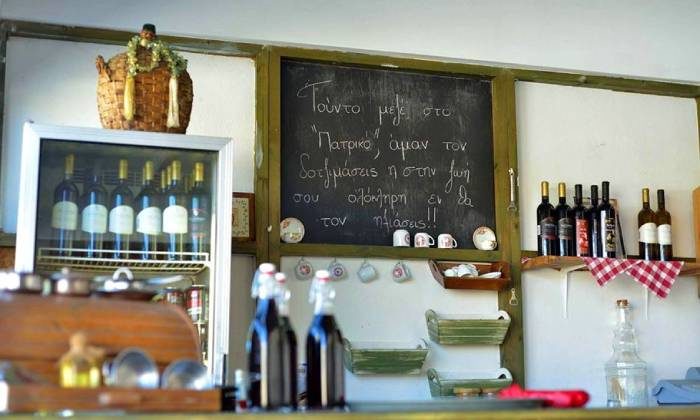 Τούντο μεζέ, στο
"Πατρικό", άμαν τον
δοτζιμάσεις η στην ζωή
σου ολόκληρη εν θα
τον ηξιάσεις!!